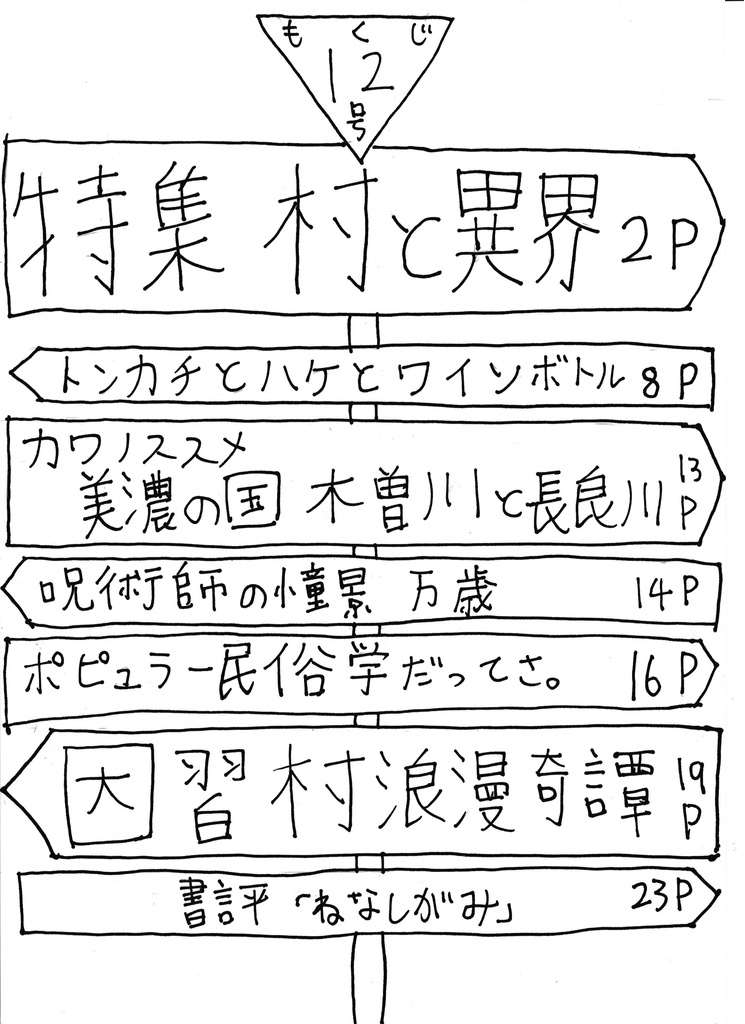 もくじ
12
号
特集 村と異界 2P
トンカチとハケとワインボトル 8P
カワノススメ
美濃の国 木曽川と長良川 13P
呪術師の憧景 万歳 14P
ポピュラー民俗学だってさ。 16P
因習村浪漫奇譚 19P
書評「ねなしがみ」 23P